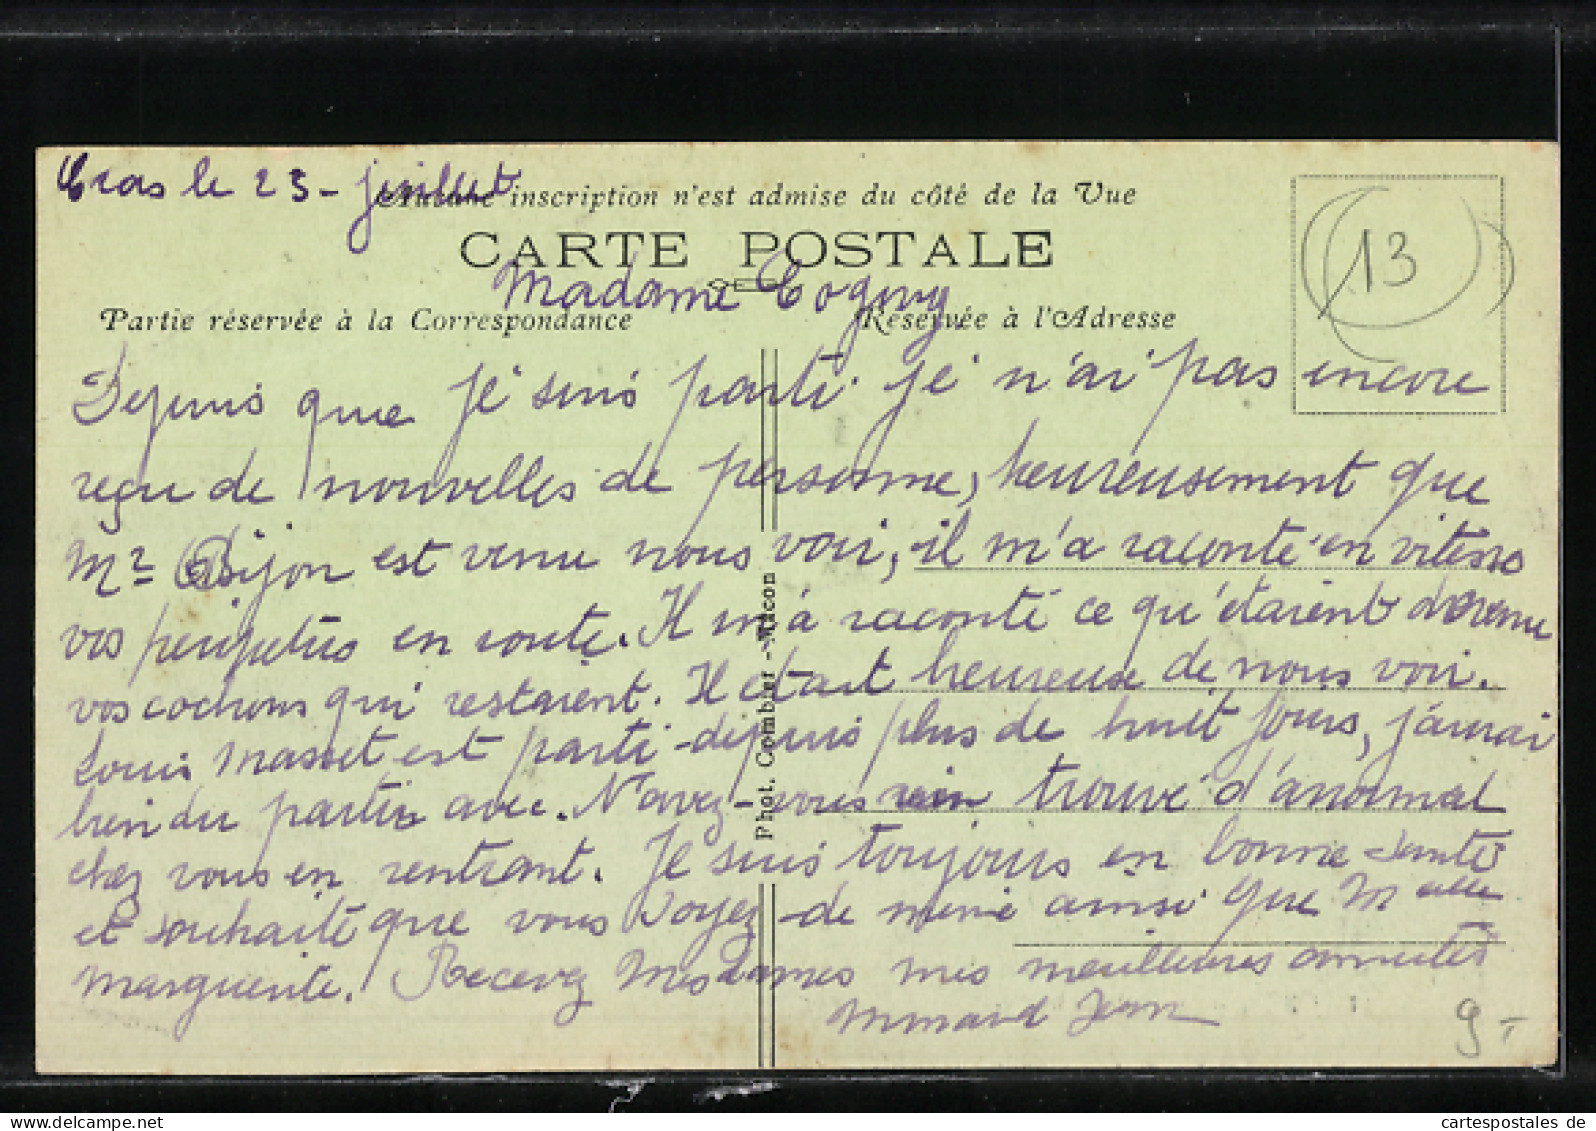 Cras le 23 - juillet
Aucune inscription n'est admise du côté de la Vue
CARTE POSTALE
Madame
Partie réservée à la Correspondance
Réservée à l'Adresse
13
Depuis que je suis parti je n'ai pas encore
reçu de nouvelles de personne, heureusement que
Mr Bijon est venu nous voir, il m'a raconté en vitesse
vos péripéties en route. Il m'a raconté ce qu'étaient devenu
vos cochons qui restaient. Il était heureux de nous voir.
Louis Masset est parti depuis plus de huit jours, j'aurai
bien du partir avec. N'avez-vous rien trouvé d'anormal
chez vous en rentrant. Je suis toujours en bonne santé
et souhaite que vous soyez de même ainsi que Melle
Marguerite. Recevez Mesdames mes meilleures amitiés
Jean
Phot. Combier - Macon
9 -
cartespostales de